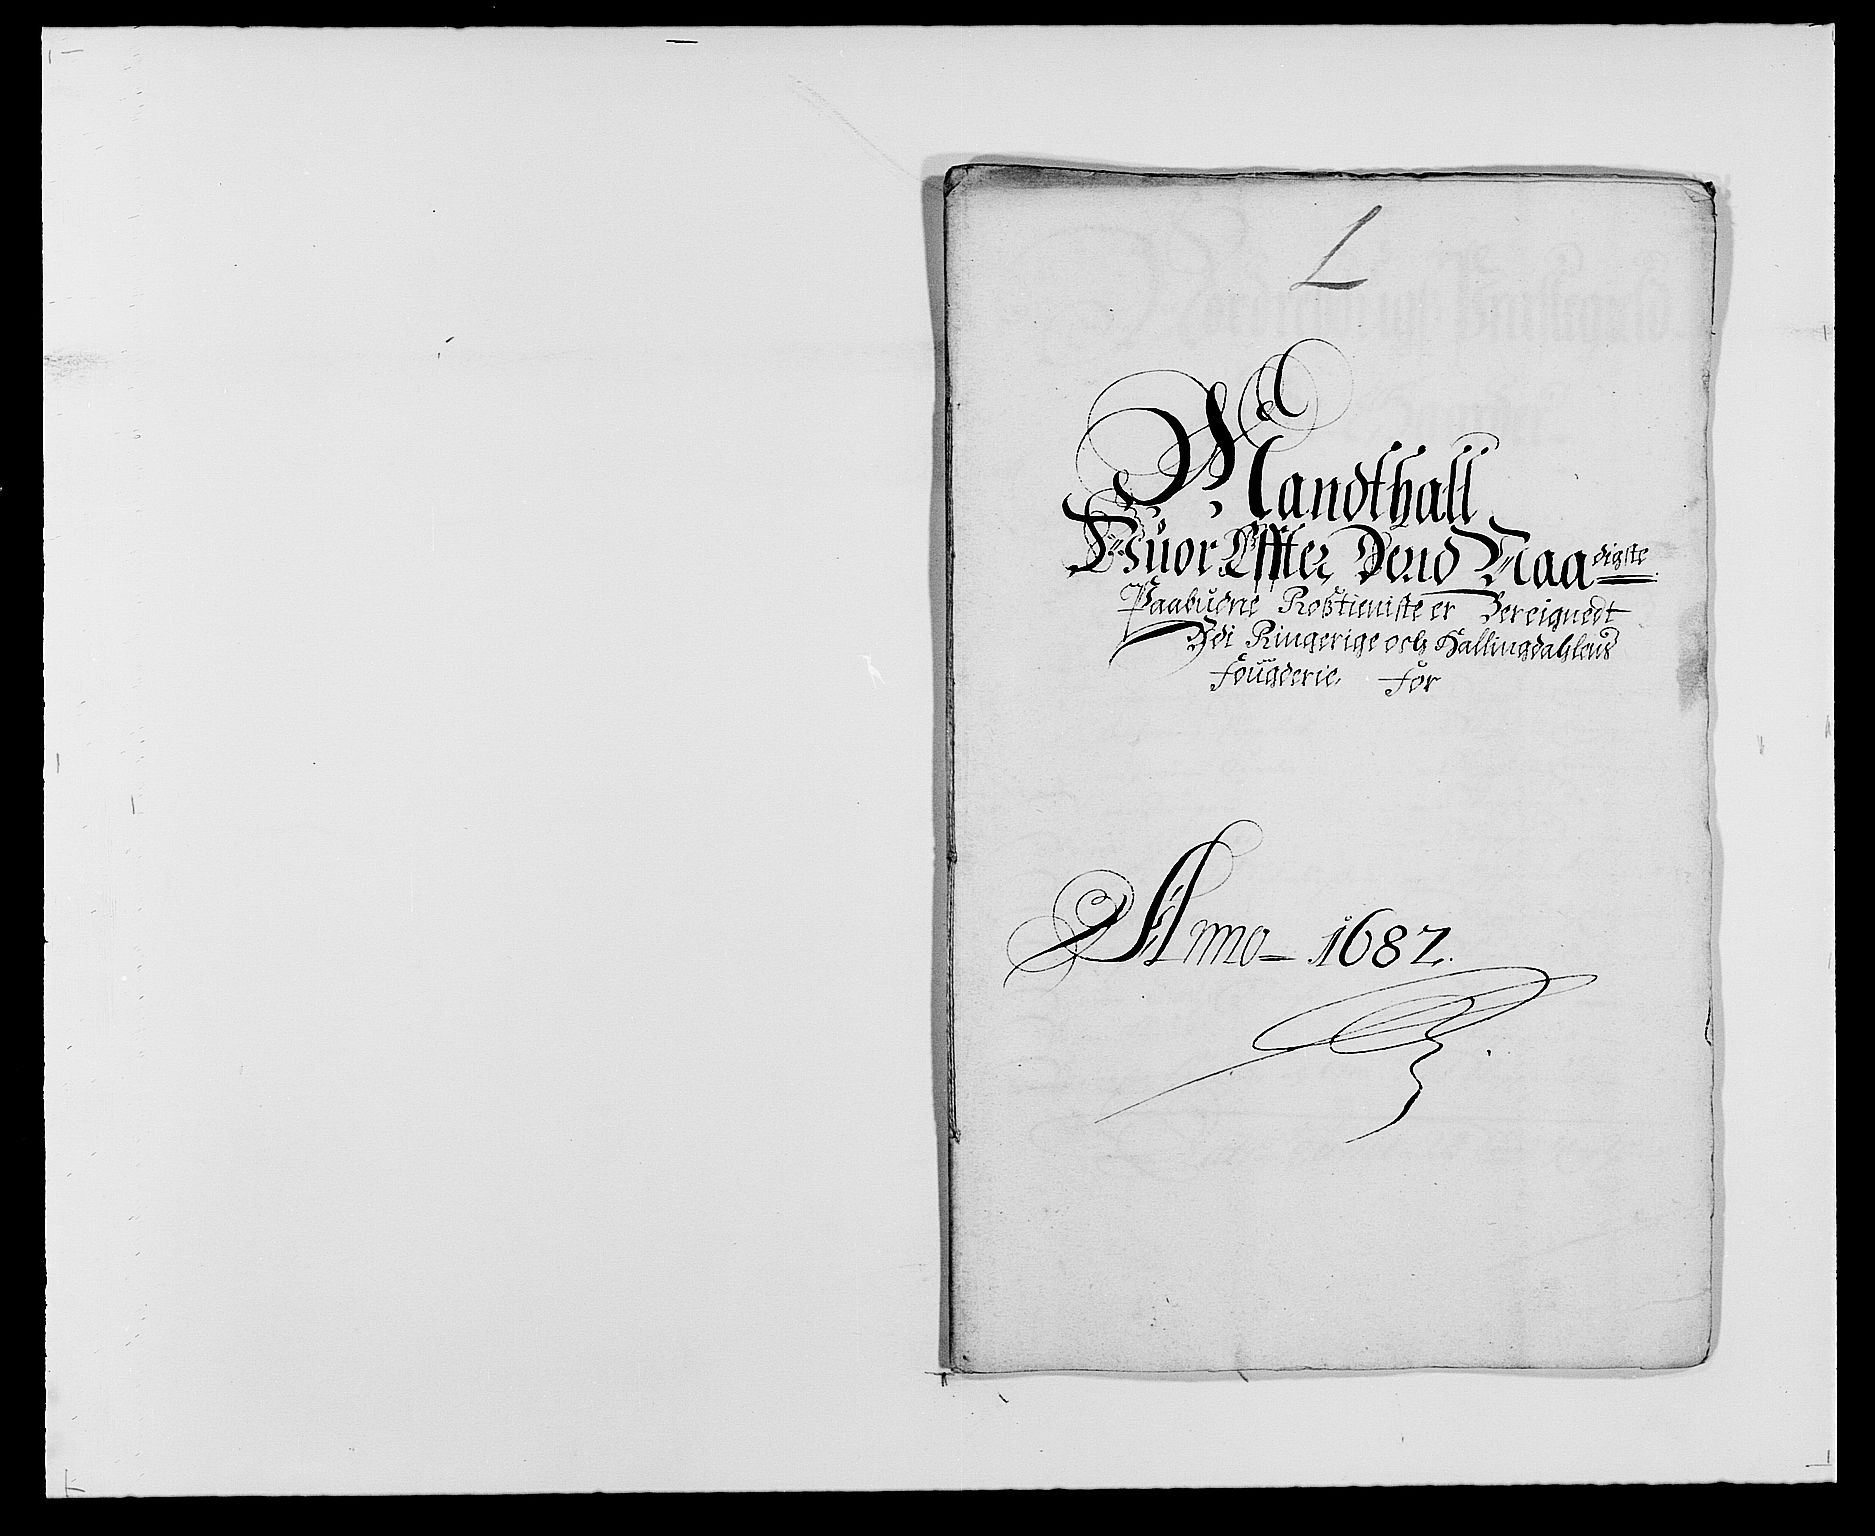 L
Mandthall
Huor Effter Dend Naadigste
Paabudne Rostieniste er Bereignedt
Udi Ringerige och Hallingdahlens
fougderie, for
Anno 1687.